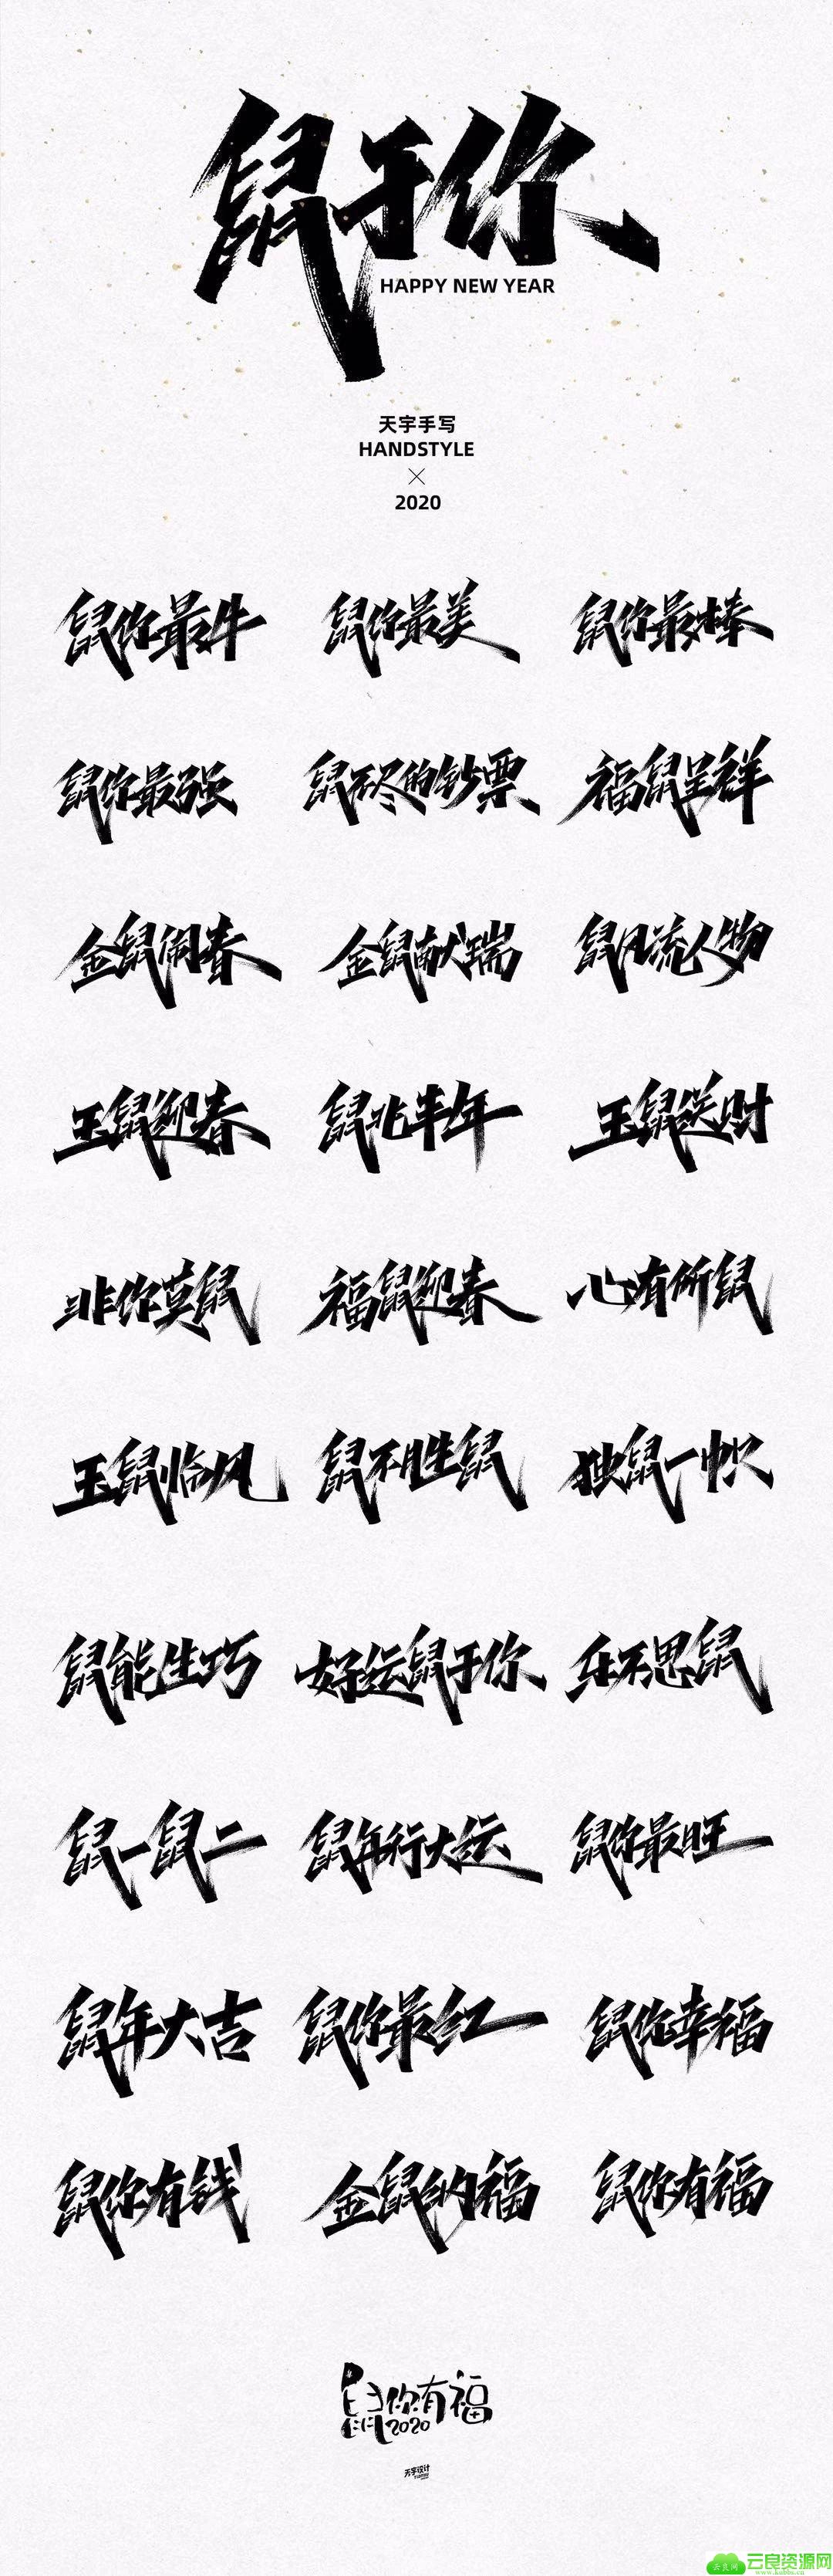 鼠于你
HAPPY NEW YEAR
天宇手写
HANDSTYLE
2020
鼠你最牛 鼠你最美 鼠你最棒
鼠你最强 鼠不尽的钞票 福鼠呈祥
金鼠闹春 金鼠献瑞 鼠风流人物
玉鼠迎春 鼠兆丰年 玉鼠送财
非你莫鼠 福鼠迎春 心有所鼠
玉鼠临风 鼠不胜鼠 独鼠一帜
鼠能生巧 好运鼠于你 乐不思鼠
鼠一鼠二 鼠年行大运 鼠你最旺
鼠年大吉 鼠你最红 鼠你幸福
鼠你有钱 金鼠纳福 鼠你有福
鼠你有福
2020
天宇设计
云良网 云良资源网